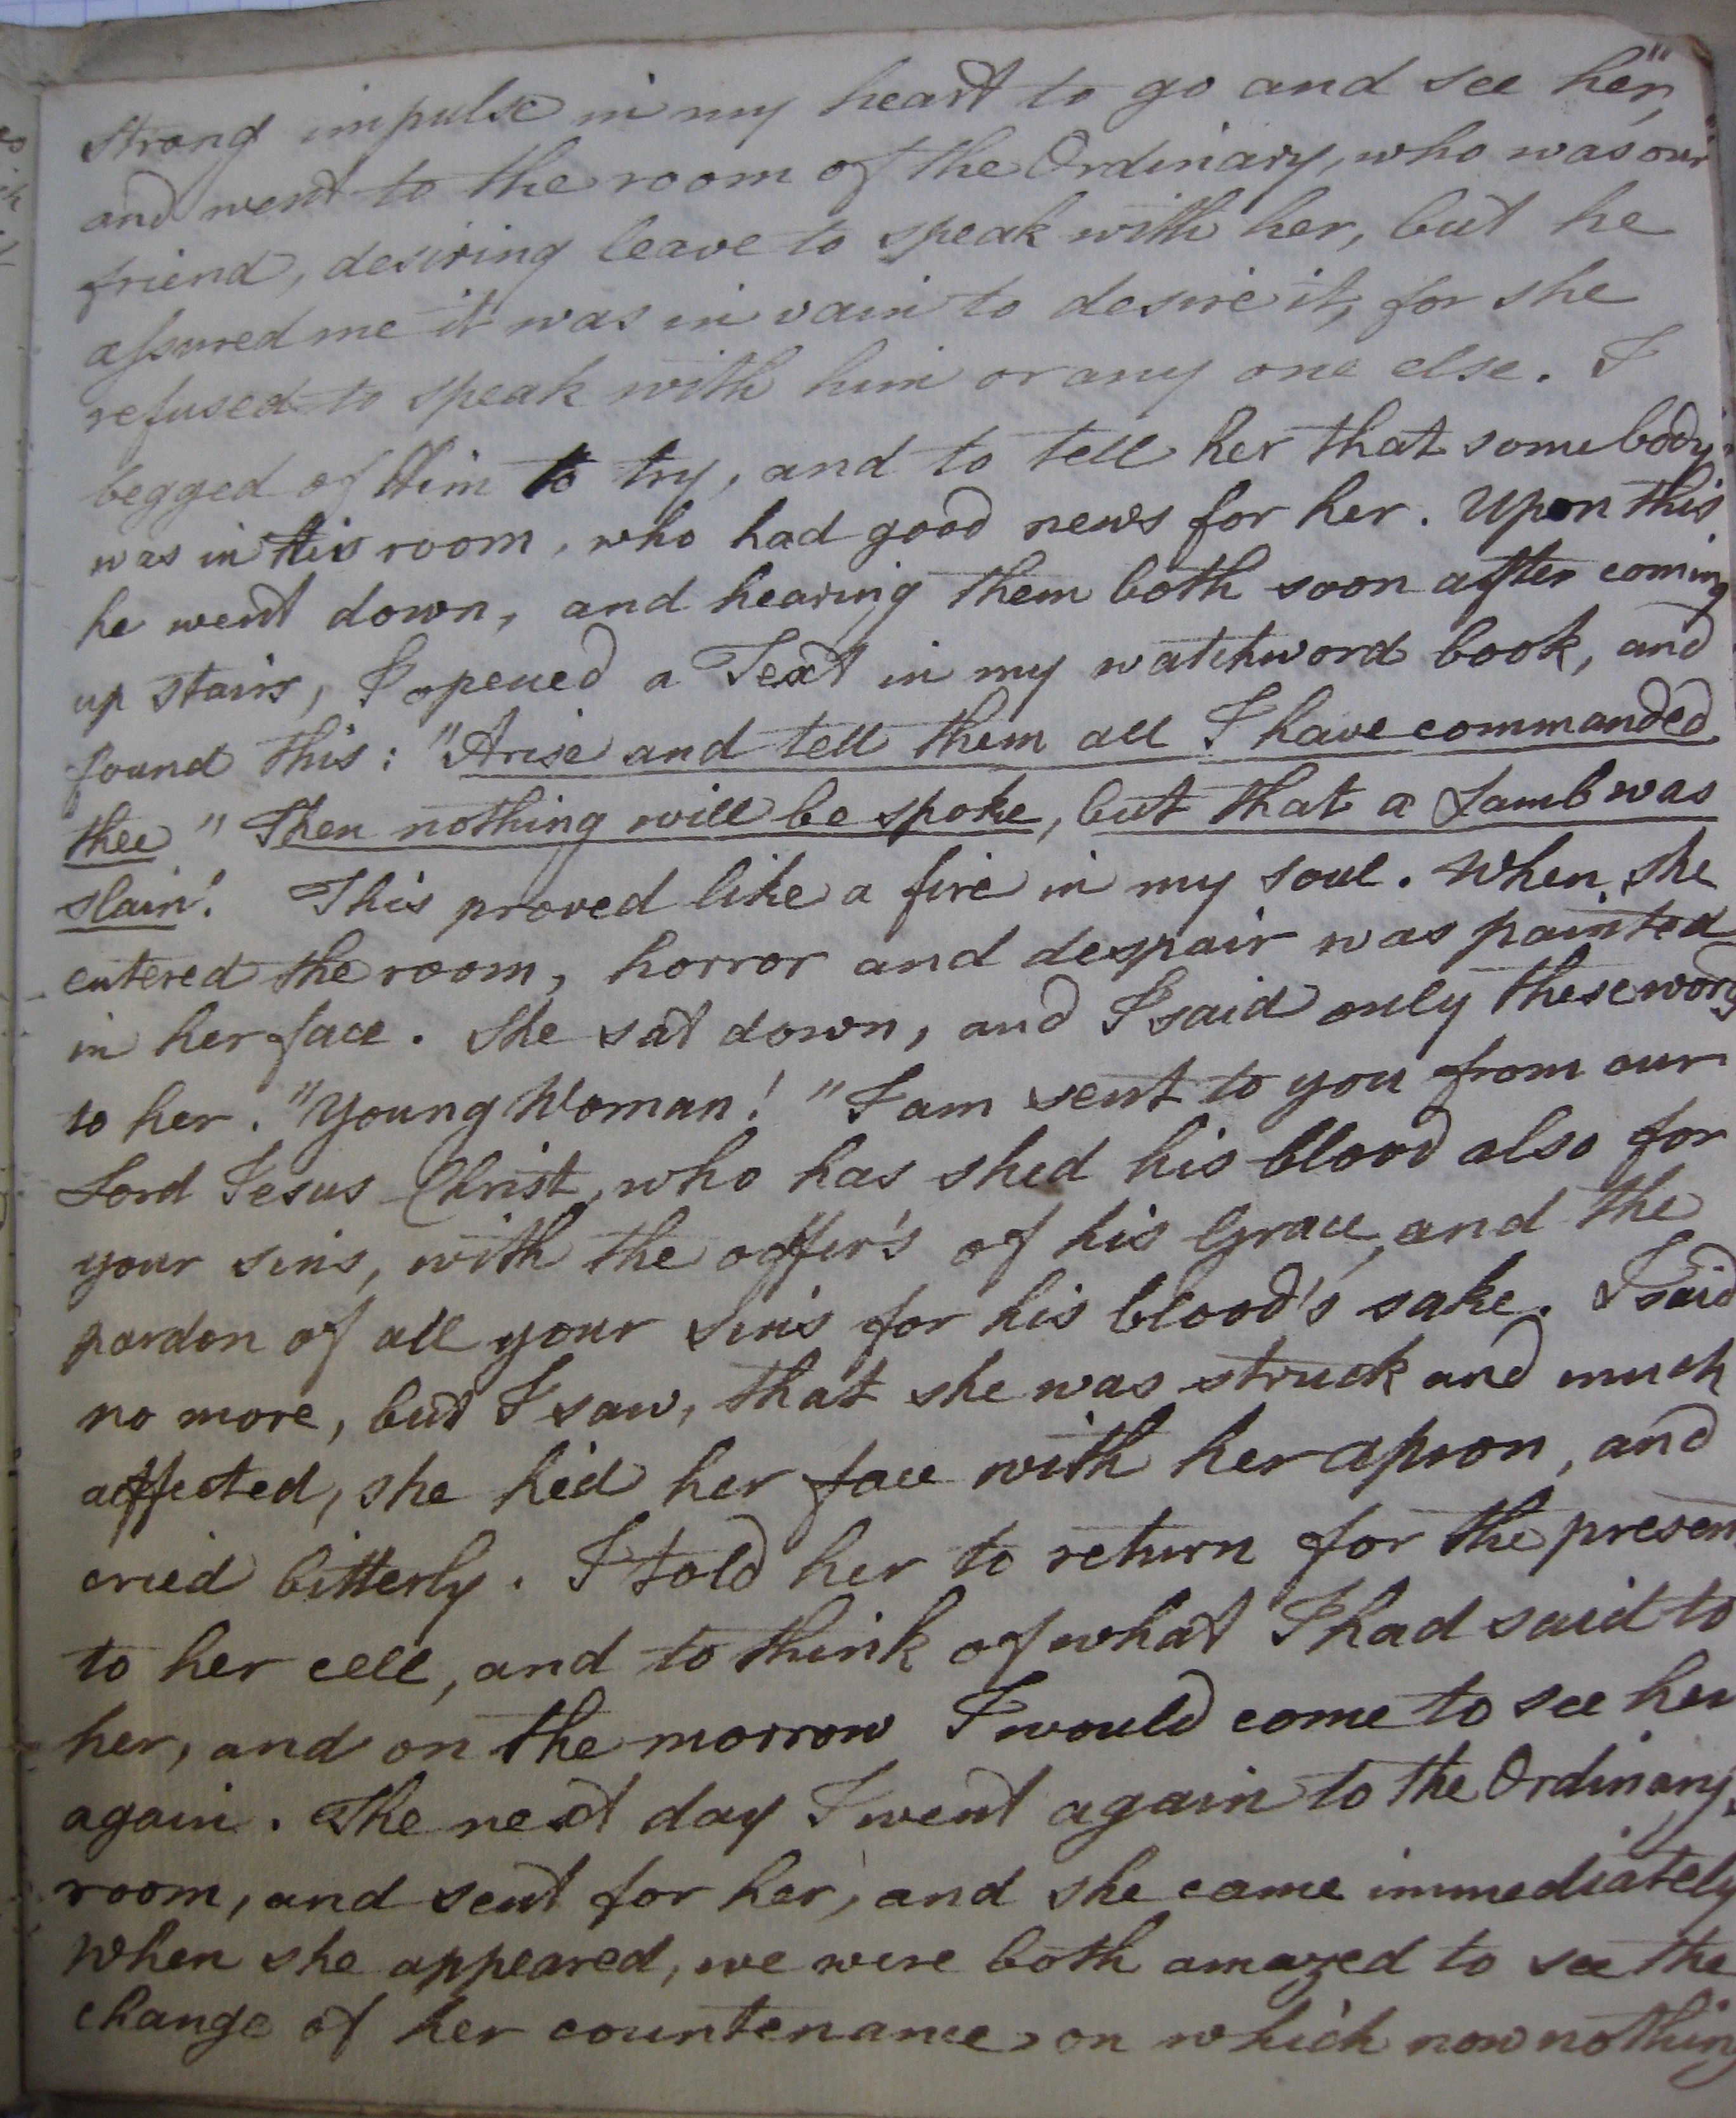 strong impulse in my heart to go and see her,
and went to the room of the Ordinary, who was our
friend, desiring leave to speak with her, but he
assured me it was in vain to desire it, for she
refused to speak with him or any one else. I
begged of Him to try, and to tell her that somebody
was in his room, who had good news for her. Upon this
he went down, and hearing them both soon after coming
up stairs, I opened a Text in my watchword book, and
found this: "Arise and tell them all I have commanded
thee" Then nothing will be spoke, but that a Lamb was
slain! This proved like a fire in my soul. When she
entered the room, horror and despair was painted
in her face. She sat down, and I said only these words
to her. "Young Woman! "I am sent to you from our
Lord Jesus Christ, who has shed his blood also for
your sins, with the offer's of his Grace, and the
pardon of all your sins for his blood's sake. I said
no more, but I saw, that she was struck and much
affected, she hid her face with her apron, and
cried bitterly. I told her to return for the presen
to her cell, and to think of what I had said to
her, and on the morrow I would come to see her
again. The next day I went again to the Ordinary's
room, and sent for her, and she came immediately
When she appeared, we were both amazed to see the
change of her countenance, on which now nothing